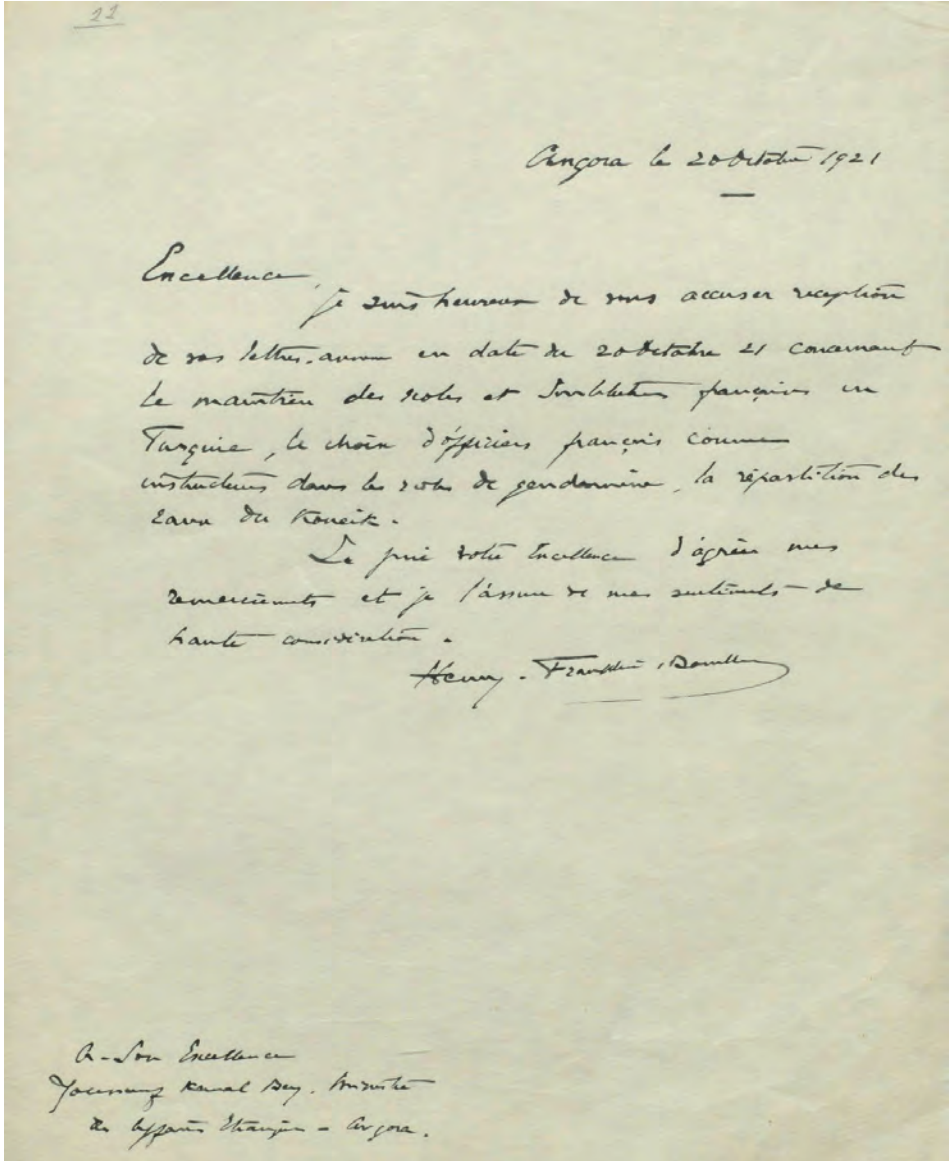 22
Angora le 20 Octobre 1921
Excellence,
je suis heureux de vous accuser reception
de vos lettres annexes en date du 20 Octobre 21 concernant
le maintien des écoles et Institutions françaises en
Turquie, le choix d'officiers français comme
instructeurs dans les écoles de gendarmerie, la répartition des
eaux du Koueik.
Je prie votre Excellence d'agréer mes
remerciements et je l'assure de mes sentiments de
haute considération.
Henry-Franklin-Bouillon
A-Son Excellence
Youssouf Kemal Bey. Ministre
des Affaires Etrangères - Angora.